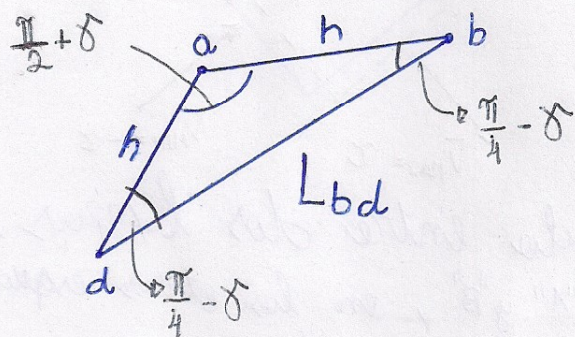 π/2 + γ
a
h
b
h
π/4 - γ
L_bd
d
π/4 - γ